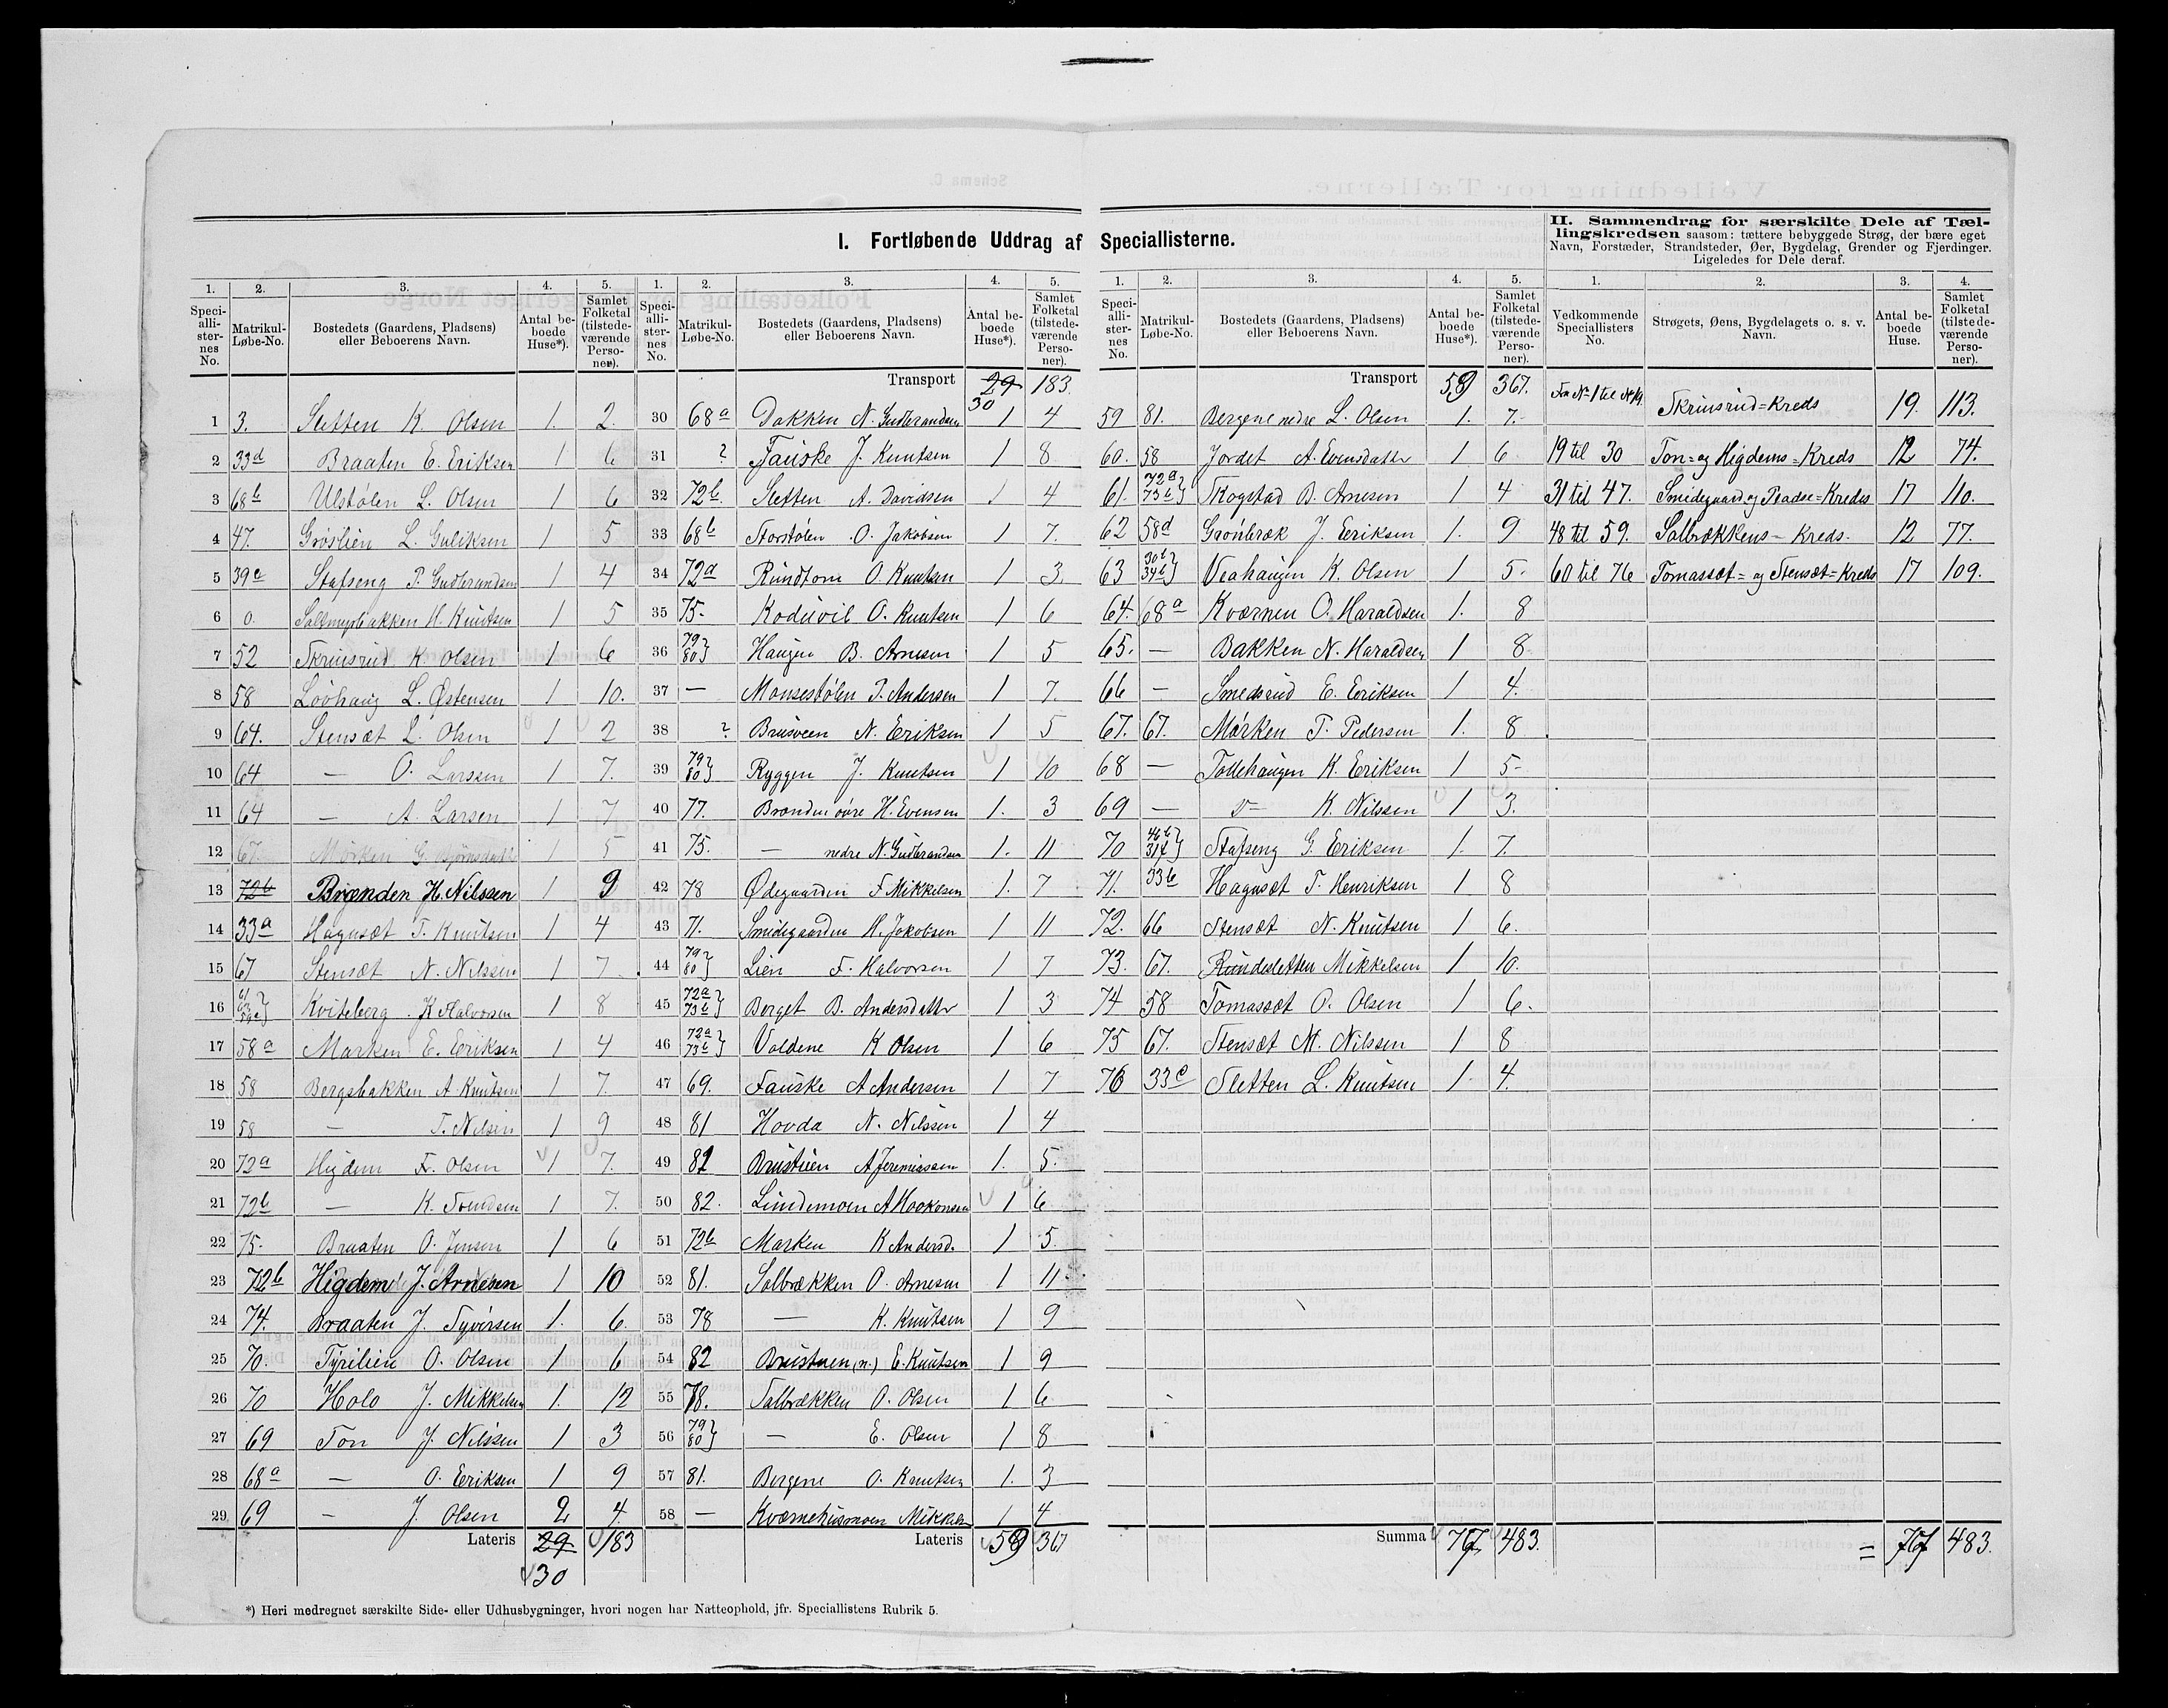 I. Fortløbende Uddrag af Speciallisterne.
1. 2. 3. 4. 5.
Speci-alli-ster-nes No. Matrikul-Løbe-No. Bostedets (Gaardens, Pladsens) eller Beboerens Navn. Antal be-boede Huse*). Samlet Folketal (tilstede-værende Perso-ner).
1 3. Sletten K. Olsen 1. 2.
2 33d Braaten E. Eriksen 1 6
3 68b Ulstølen L. Olsen 1 6
4 47. Grøslien L. Guliksen 1 5
5 39c Stafseng P. Gudbrandsen 1 4
6 0. H. Knutsen 1 5
7 52 Skrinsrud K. Olsen 1 6
8 58 Løvhaug L. Østensen 1 10.
9 64. Stensæt L. Olsen 1 2
10 64 — O. Larssen 1 7.
11 64 — A. Larsen 1 7
12 67 Mørken G. Bjørnsdatt 1 5
13 72b Brænden H. Nilssen 1 9
14 33a Hagasæt T. Knutsen 1 4
15 67 Stensæt N. Nilssen 1 7
16 Kviteberg K Halvorsen 1 8
17 58a Marken E. Eriksen 1 4
18 58 Bergsbakken A. Knutsen 1 7.
19 58 — T. Nilsen 1 9
20 72a Higdem F. Olsen 1 7.
21 72b — K. 1 7.
22 75. Braaten O. Jensen 1 6
23 72b Higdem J. Arnesen 1 10
24 74. Braaten J. Syversen 1. 6.
25 70. Tyrilien O. Olsen 1 6
26 70 Holo J. Mikkelsen 1. 12
27 69 Ton J. Nilssen 1 3
28 68a — O. Eriksen 1 9
29 69 — J. Olsen 2 4.
Lateris 29 183
30
1. 2. 3. 4. 5.
Speci-alli-ster-nes No. Matrikul-Løbe-No. Bostedets (Gaardens, Pladsens) eller Beboerens Navn. Antal be-boede Huse*). Samlet Folketal (tilstede-værende Perso-ner).
Transport 29 183.
30
30 68a Dokken N. Gudbrandsen 1 4
31 ? Fauske J. Knutsen 1 8
32 72b. Sletten A. Davidsen 1 4
33 68b Storstølen O. Jakobsen 1 7.
34 72d Rundtom O. Knutsen 1 3.
35 75. Koduvil O. Knutsen 1 6
36 79 80} Haugen B. Arnesen 1 5
37 — Monsestølen P. Andersen 1 7.
38 ? Brusveen N. Eriksen 1 5
39 79 80} Ryggen J. Knutsen 1 10
40 77. Brænden øvre H. Evensen 1. 3
41 75. — nedre N. Gudbrandsen 1. 11
42 78 Ødegaarden F. Mikkelsen 1. 7
43 71. Smidegaarden H. Jakobsen 1 11
44 79 80} Lien F. Halvorsen 1 7
45 72a 73b} Berget B. Andersdattr 1 3
46 72a 73b} Voldene K Olsen 1 6
47 69. Fauske A Andersen 1 7
48 81 Hovda N. Nilssen 1 4
49 82 Brustuen A Jeremiassen 1. 5.
50 82. Lundemoen A Haakonsen 1 6
51 72b Marken K Andersd. 1 5.
52 81. Salbrækken O. Arnesen 1 11.
53 78 — K. Knutsen 1 9
54 82 Brustuen (n.) E. Knutsen 1 9
55 78. Salbrækken O. Olsen 1 6
56 79 80} — E. Olsen 1 8
57 81. Bergene O. Knutsen 1. 3
58 — Kværnehusmoen Mikkels 1 4
Lateris 59 367
1. 2. 3. 4. 5.
Speci-alli-ster-nes No. Matrikul-Løbe-No. Bostedets (Gaardens, Pladsens) eller Beboerens Navn. Antal be-boede Huse*). Samlet Folketal (tilstede-værende Perso-ner).
Transport 59 367.
59 81. Bergene nedre L. Olsen 1. 7.
60. 58 Jordet A. Evensdattr 1 6
61. 72a 73b} Skogstad B. Arnesen 1 4
62 58d Grønbræk J. Eriksen 1. 9
63 30b 34b} Veahaugen K. Olsen 1 5.
64. 68a Kværnen O. Haraldsen 1. 8
65. — Bakken N. Haraldsen 1 8
66 — Smedsrud E. Eriksen 1 4.
67. 67. Mørken T. Pedersen 1. 8
68 — Tollehaugen K. Eriksen 1 5
69 — K. Nilssen 1 3.
70 Stafseng G. Eriksen 1. 7.
71. 33b Hagasæt T. Henriksen 1 8
72. 66 Stensæt N. Knutsen 1 6.
73. 67. Rundesletten Mikkelsen 1 10.
74 58 Tomassæt O. Olsen 1 6.
75 67. Stensæt M. Nilssen 1 8
76 33e Sletten L. Knutsen 1. 4.
Summa 77 483.
II. Sammendrag for særskilte Dele af Tæl-
lingskredsen saasom: tættere bebyggede Strøg, der bære eget
Navn, Forstæder, Strandsteder, Øer, Bygdelag, Grender og Fjerdinger.
Ligeledes for Dele deraf.
1. 2. 3. 4.
Vedkommende Speciallisters No. Strøgets, Øens, Bygdelagets o. s. v. Navn. Antal be-boede Huse. Samlet Folketal (tilstede-værende Perso-ner).
Fra No 1 til Skrinsrud=Kreds 19. 113.
19 til 30 Ton= og Higdems=Kreds 12 74.
31 til 47. Smidegaard og =Kreds 17 110.
48 til 59. Salbrækkens=Kreds. 12 77.
60 til 76 Tomassæt= og Stensæt=Kreds 17 109.
= 77 483.
*) Heri medregnet særskilte Side- eller Udhusbygninger, hvori nogen har Natteophold, jfr. Speciallistens Rubrik 5.